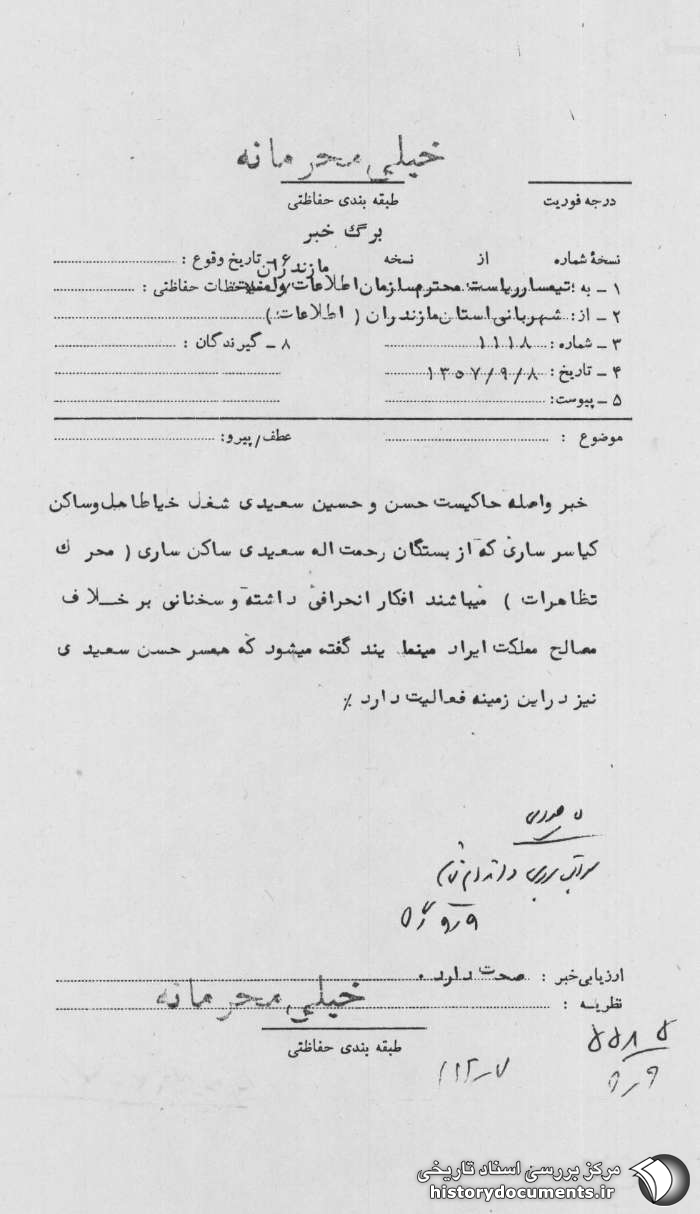 خیلی محرمانه
درجه فوریت
طبقه بندی حفاظتی
برگ خبر
نسخهٔ شماره از نسخه ۶ـ تاریخ وقوع :
مازندران
۱ ـ به : تیمسار ریاست محترم سازمان اطلاعات و امنیت ملاحظات حفاظتی :
۲ ـ از : شهربانی استان مازندران ( اطلاعات )
۳ ـ شماره : ۱۱۱۸ ۸ ـ گیرندگان :
۴ ـ تاریخ : ۱۳۵۷/۹/۸
۵ ـ پیوست :
موضوع : عطف/پیرو:
خبر واصله حاکیست حسن و حسین سعیدی شغل خیاط اهل و ساکن
کیاسر ساری که از بستگان رحمت اله سعیدی ساکن ساری ( محرک
تظاهرات ) میباشند افکار انحرافی داشته و سخنانی بر خلاف
مصالح مملکت ایراد مینمایند گفته میشود که همسر حسن سعیدی
نیز در این زمینه فعالیت دارد ٪
ارزیابی خبر : صحت دارد .
نظریه :
خیلی محرمانه
طبقه بندی حفاظتی
مرکز بررسی اسناد تاریخی
historydocuments.ir